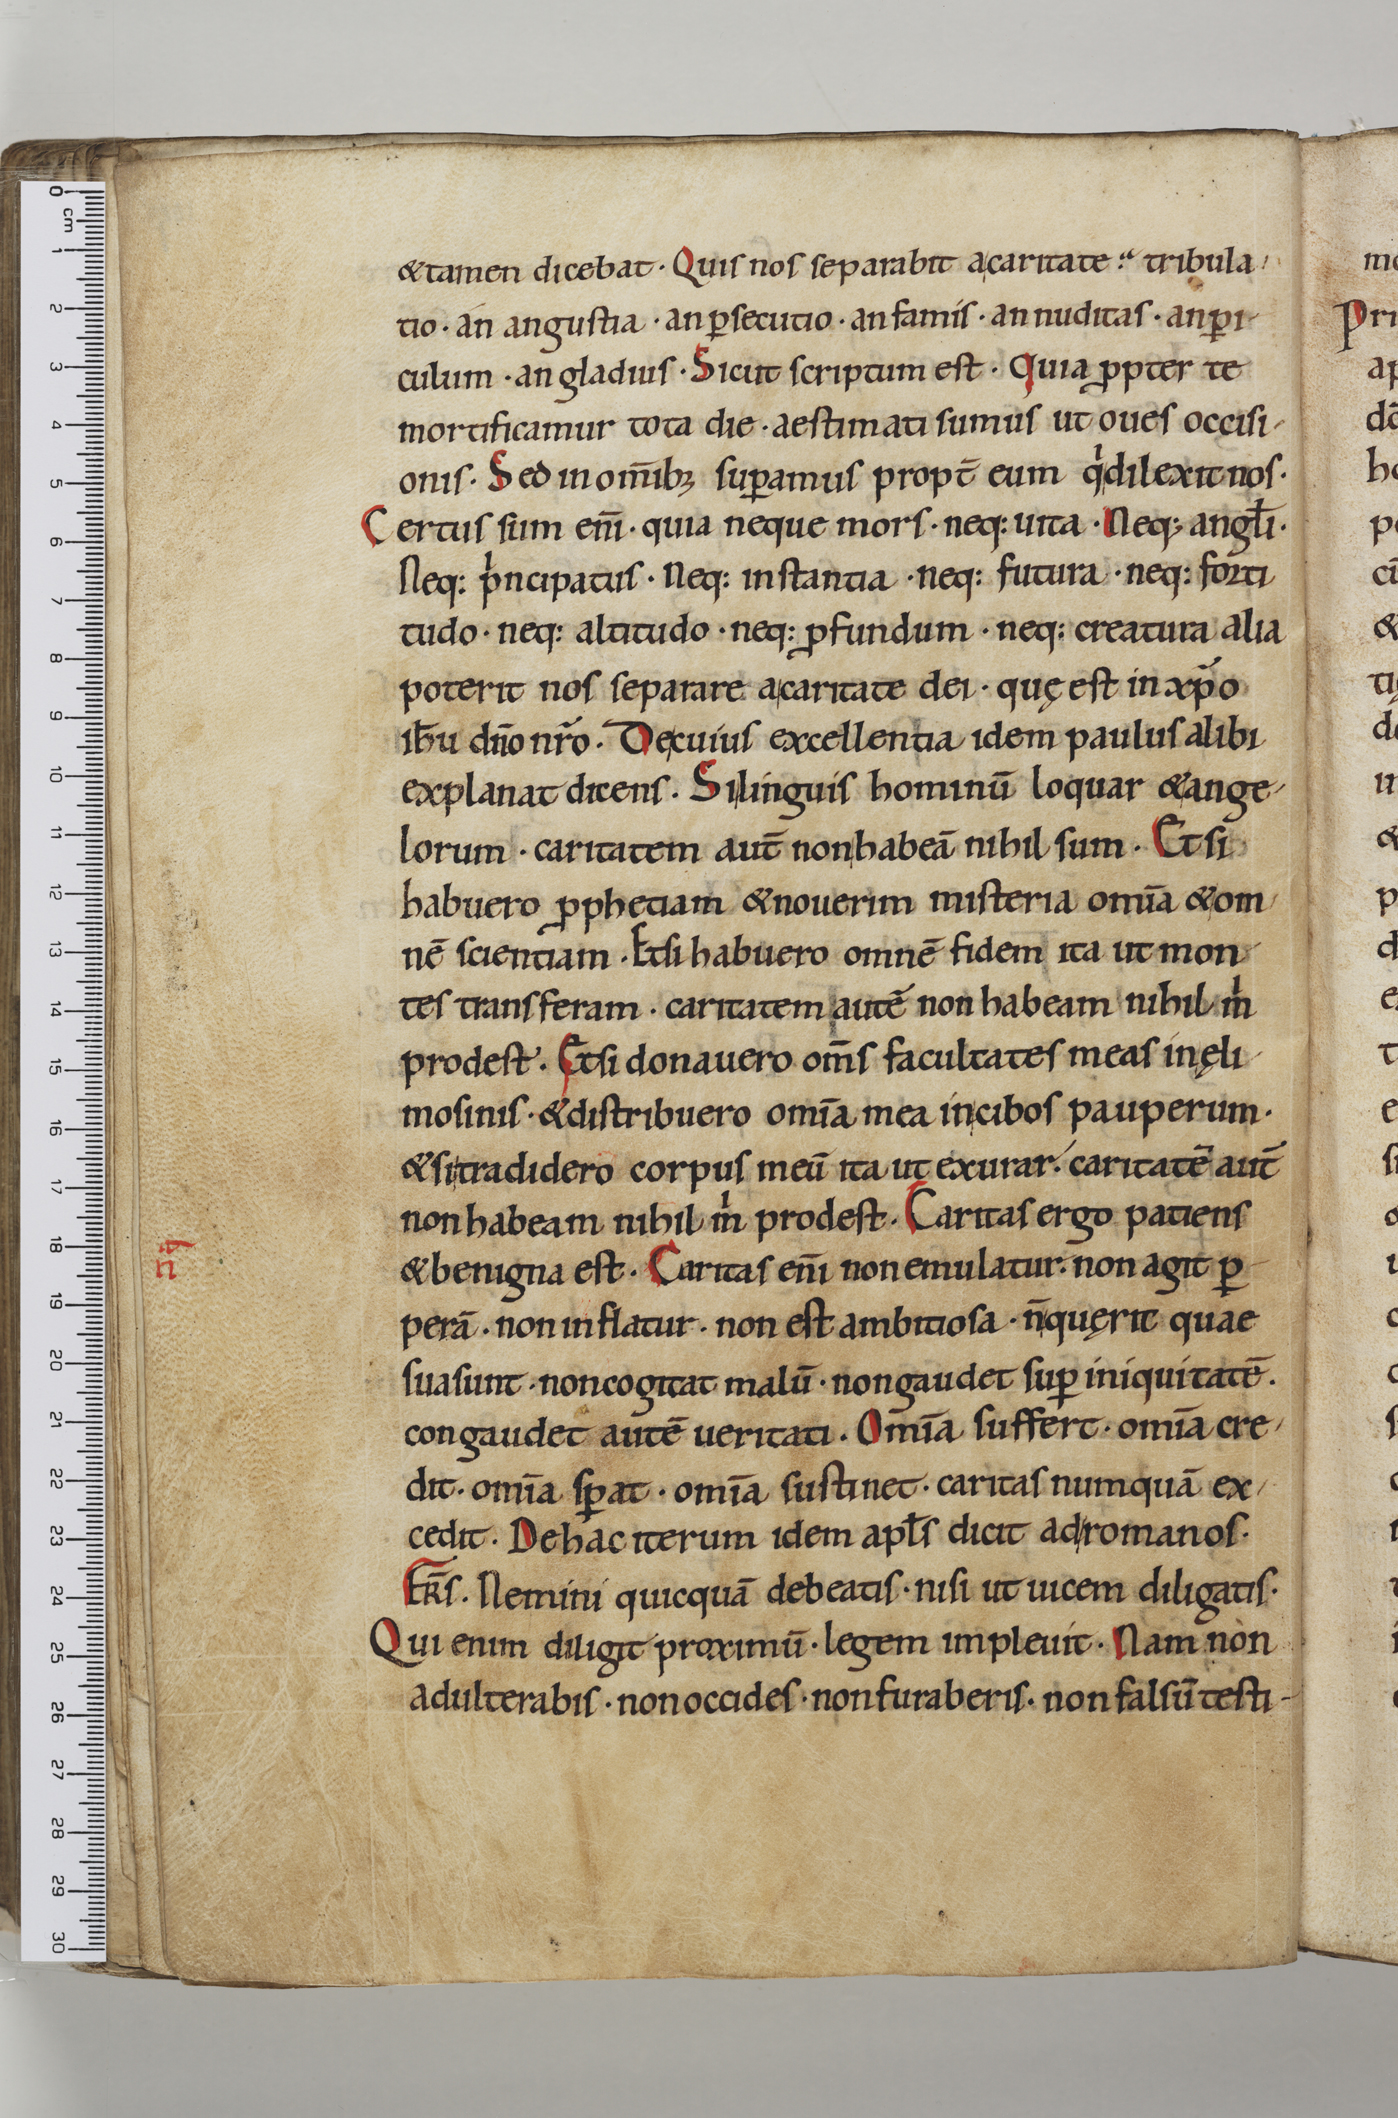 &tamen dicebat · Quis nos separabit acaritate? tribula-
tio · an angustia · an ꝑsecutio · an famis · an nuditas · an ꝑi-
culum · an gladius · Sicut scriptum est · Quia ꝓpter te
mortificamur tota die · aestimati sumus ut oues occisi-
onis · Sed in om̅ibꝫ suꝑamus propt̅ eum qͥ dilexit nos ·
Certus sum en̅i · quia neque mors · neq: uita · Neqꝫ angl̅i ·
Neq: pͥncipatus · Neq: instantia · neq: futura · neq: forti
tudo · neq: altitudo · neq: ꝓfundum · neq: creatura alia
poterit nos separare acaritate dei · quę est in xp̅o
ih̅u dn̅o nr̅o · De cuius excellentia idem paulus alibi
explanat dicens · Si linguis hominū loquar & ange-
lorum · caritatem aut̅ non habeā nihil sum · Et si
habuero ꝓphetiam & nouerim misteria omīa & om-
nē scientiam · Etsi habuero omnē fidem ita ut mon-
tes transferam · caritatem autē non habeam nihil mͥ
prodest · Etsi donauero om̅s facultates meas in ęli-
mosinis · & distribuero omīa mea in cibos pauperum ·
& si tradidero corpus meū ita ut exurar · caritatē aut̅
non habeam nihil mͥ prodest · Caritas ergo patiens
& benigna est · Caritas en̅i non emulatur · non agit ꝑ-
perā · non inflatur · non est ambitiosa · n̅ quęrit quae
sua sunt · non cogitat malū · non gaudet suꝑ iniquitatē ·
congaudet autē ueritati · Omīa suffert · omīa cre-
dit · omīa sꝑat · omīa sustinet · caritas numquā ex-
cedit · De hac iterum idem apl̅s dicit ad romanos ·
Fr̅s · Nemini quicquā debeatis · nisi ut uicem diligatis ·
Qui enim diligit proximū · legem impleuit · Nam non
adulterabis · non occides · non furaberis · non falsū testi-